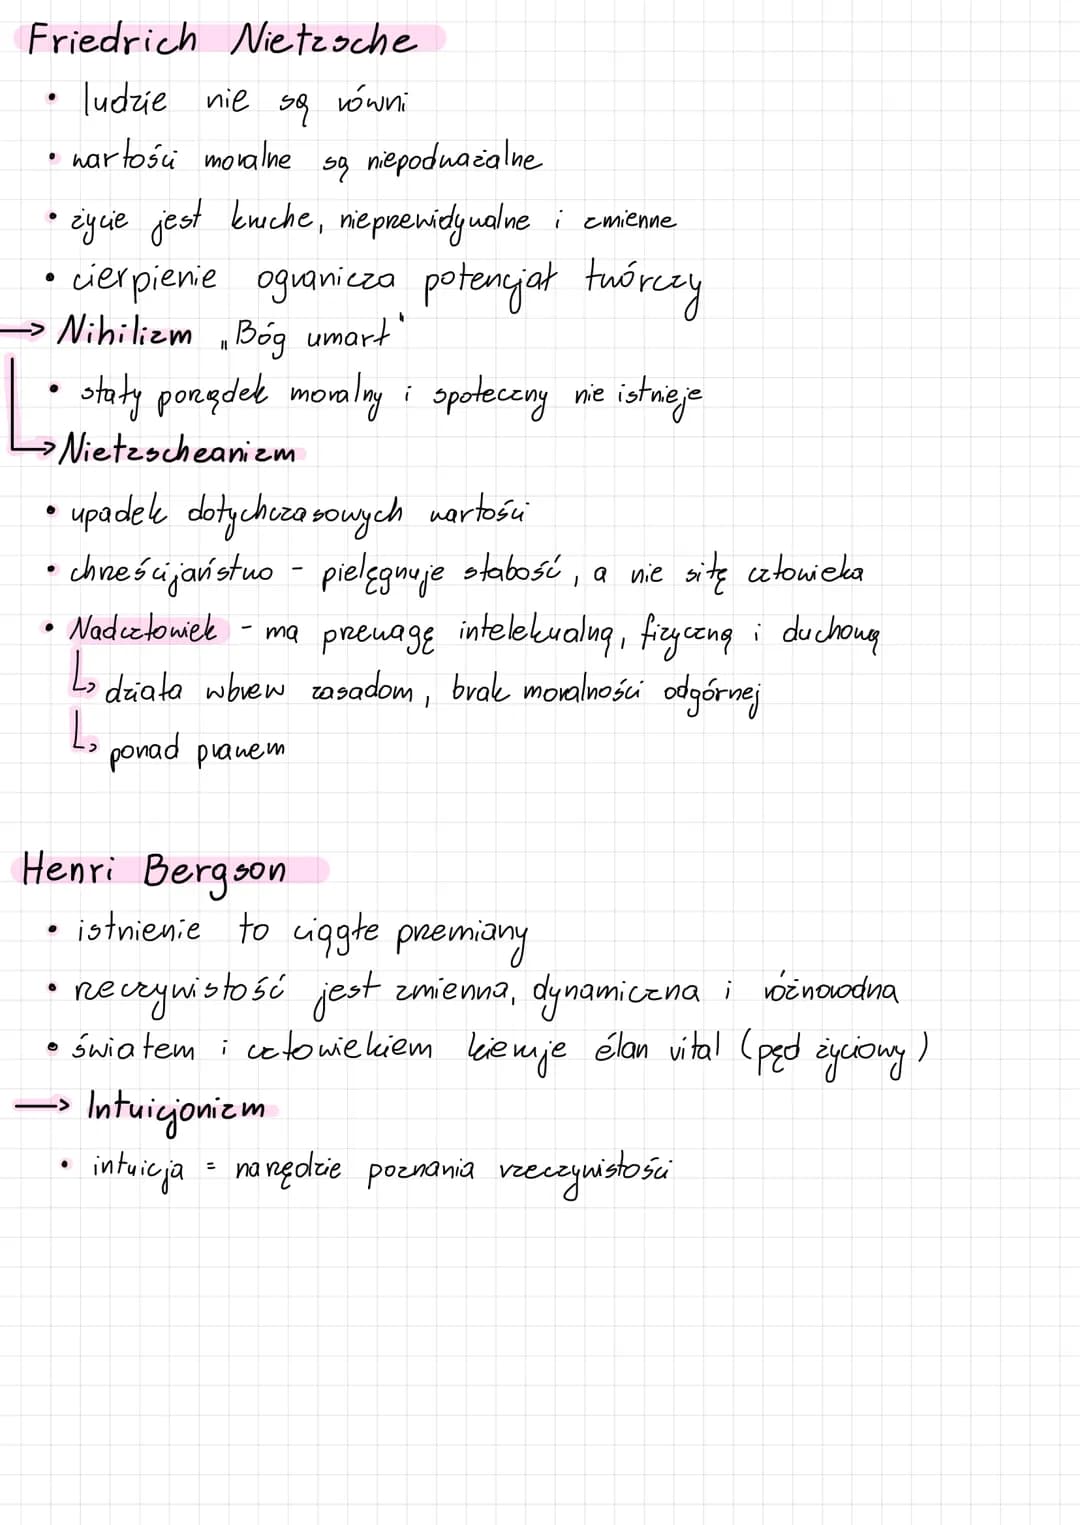 Friedrich Nietzsche
• ludzie nie są równi
• wartości moralne są niepodważalne
• życie jest kruche, nieprzewidywalne i zmienne
• cierpienie ogranicza potencjał twórczy
→ Nihilizm „Bóg umarł"
• stały porządek moralny i społeczny nie istnieje
→ Nietzscheanizm
• upadek dotychczasowych wartości
• chrześcijaństwo - pielęgnuje słabość, a nie siłę człowieka
• Nadczłowiek - ma przewagę intelekualną, fizyczną i duchową
↳ działa wbrew zasadom, brak moralności odgórnej
↳ ponad prawem
Henri Bergson
• istnienie to ciągłe przemiany
• rzeczywistość jest zmienna, dynamiczna i różnorodna
• światem i człowiekiem kieruje élan vital (pęd życiowy)
→ Intuicjonizm
• intuicja = narzędzie poznania rzeczywistości